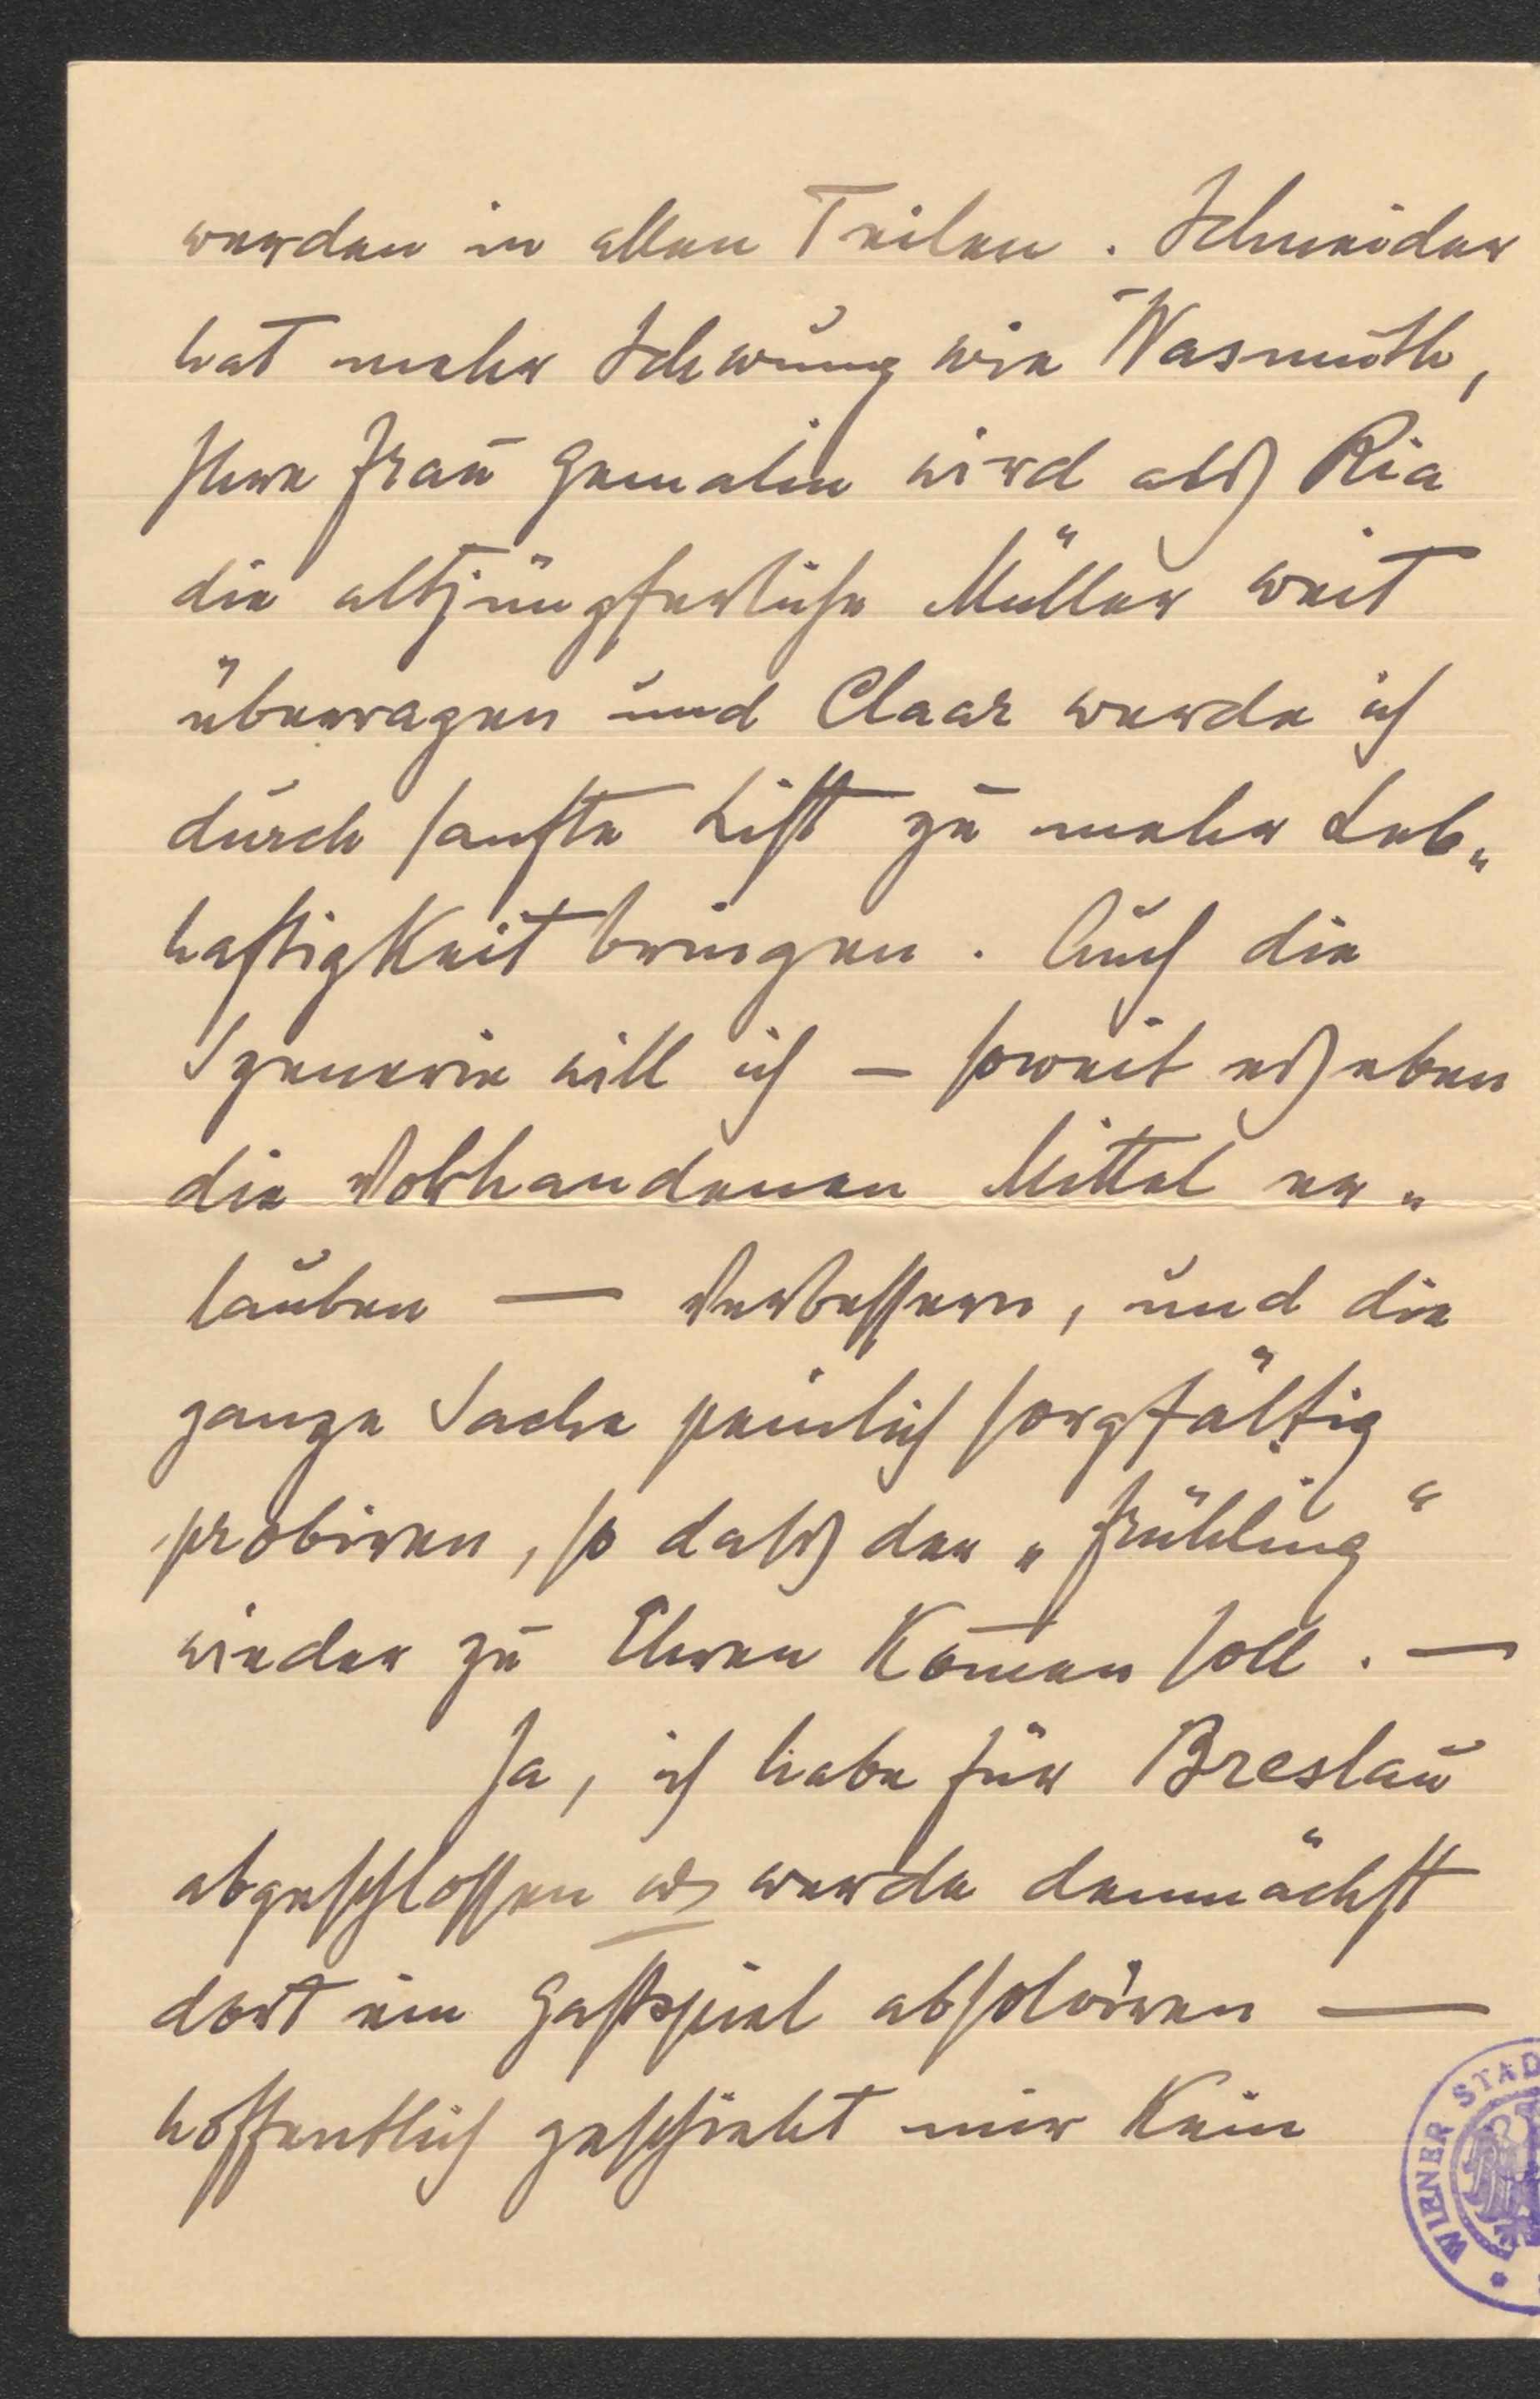 werden in allen Teilen. Schneider
hat mehr Schwung wie Wasmuth,
Ihre Frau Gemalin wird als Ria
die altjüngferliche Müller weit
überragen und Claar werde ich
durch sanfte List zu mehr Leb„
haftigkeit bringen. Auch die
Szenerie will ich – soweit es eben
die vorhandenen Mittel er„
lauben — verbessern, und die
ganze Sache peinlich sorgfältig
probiren, so daß der „Frühling“
wieder zu Ehren kom̅en soll. —
Ja, ich habe für Breslau
abgeschlossen u werde demnächst
dort ein Gastspiel absolviren —
hoffentlich geschieht mir kein
WIENER STAD